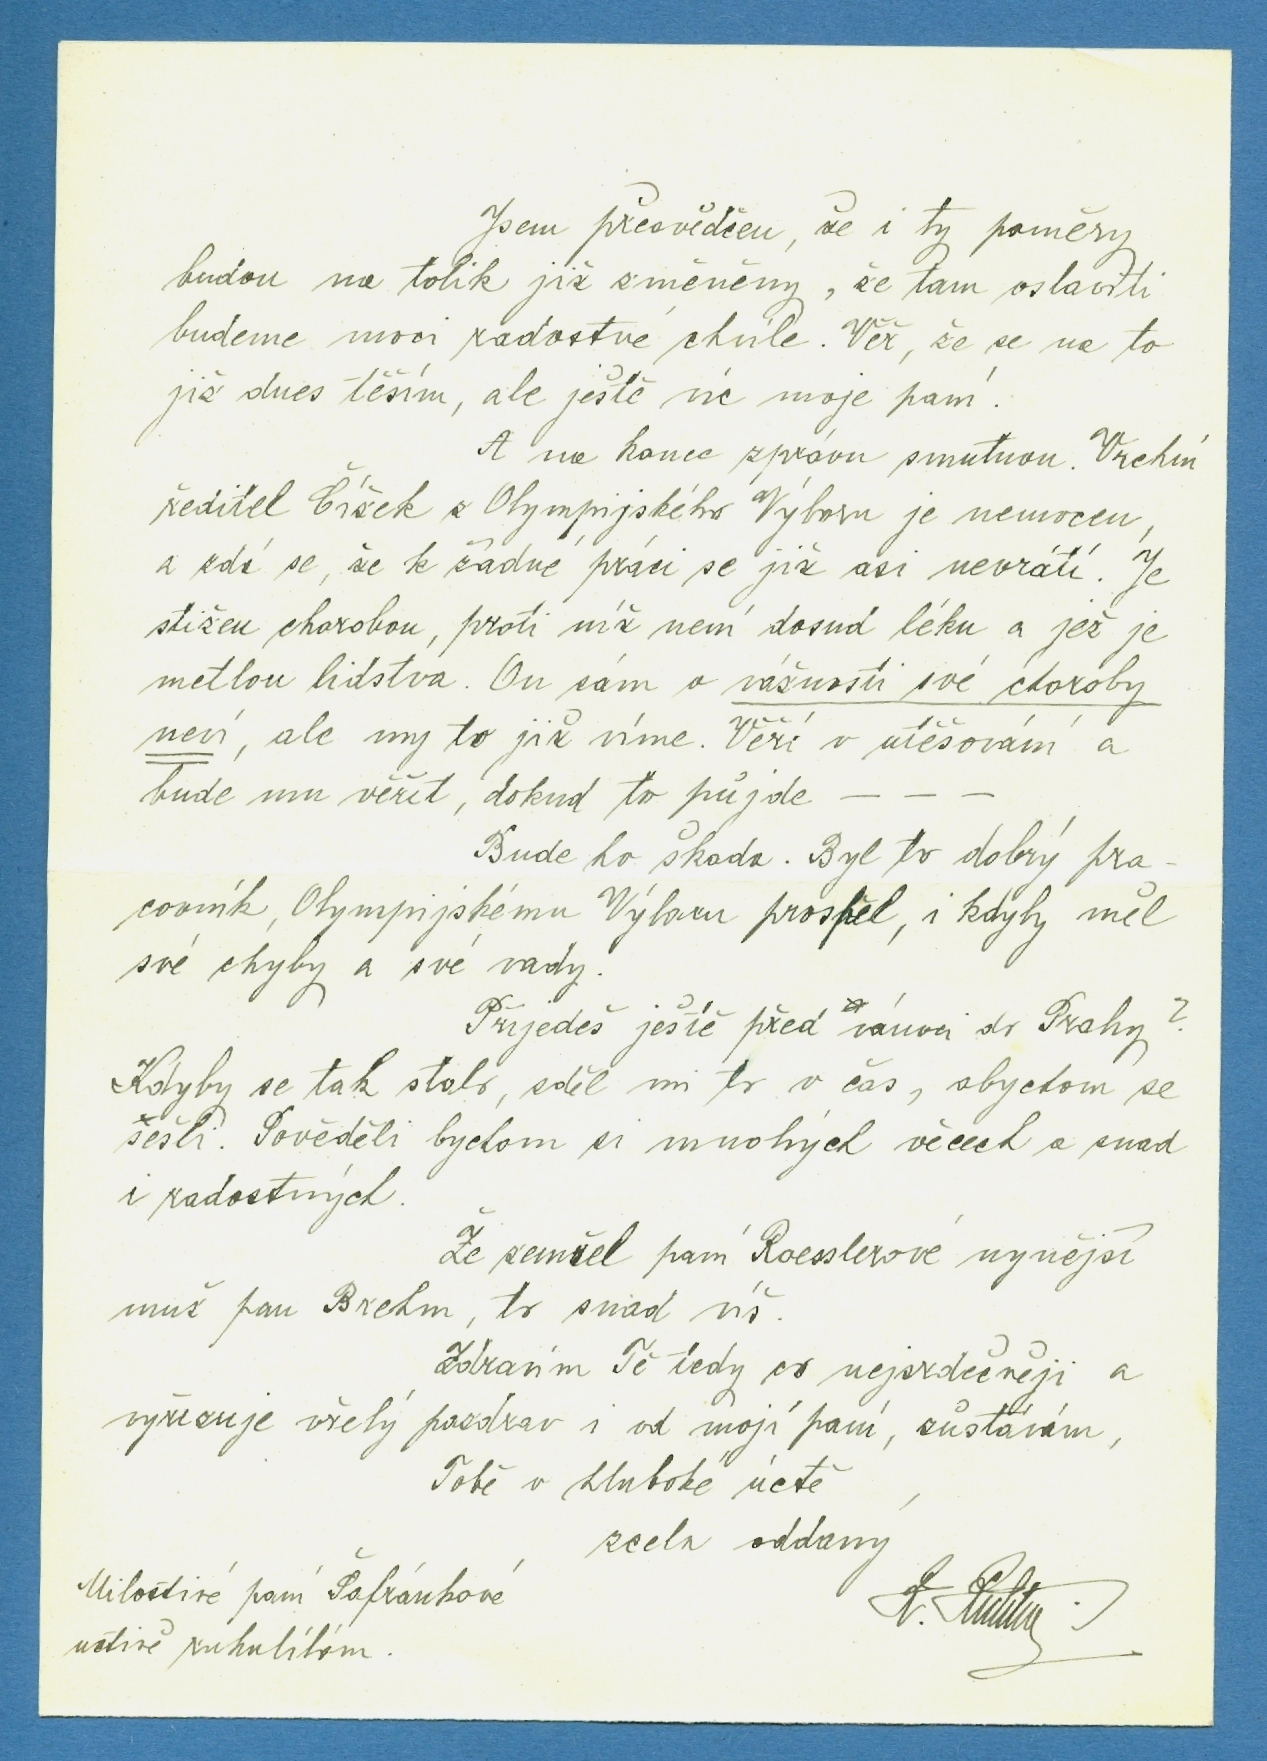 Jsem přesvědčen, že i ty poměry
budou na tolik již změněny, že tam oslaviti
budeme moci radostné chvíle. Věř, že se na to
již dnes těším, ale ještě víc moje paní.
A na konec zprávu smutnou. Vrchní
ředitel Čížek z Olympijského Výboru je nemocen,
a zdá se, že k žádné práci se již asi nevrátí. Je
stižen chorobou, proti níž není dosud léku a jež je
metlou lidstva. On sám o vážnosti své choroby
neví, ale my to již víme. Věří v utěšování a
bude mu věřit, dokud to půjde — — —
Bude ho škoda. Byl to dobrý pra-
covník, Olympijskému Výboru prospěl, i kdyby měl
své chyby a své vady.
Přijedeš ještě před vánoci do Prahy?
Kdyby se tak stalo, sděl mi to v čas, abychom se
sešli. Pověděli bychom si mnohých věcech a snad
i radostných.
Že zemřel paní Roesslerové nynější
muž pan Brehm, to snad víš.
Zdravím Tě tedy co nejsrdečněji a
vyřizuje vřelý pozdrav i od mojí paní, zůstávám,
Tobě v hluboké úctě
zcela oddaný
Milostivé paní Šafránkové
uctivě rukulíbám.